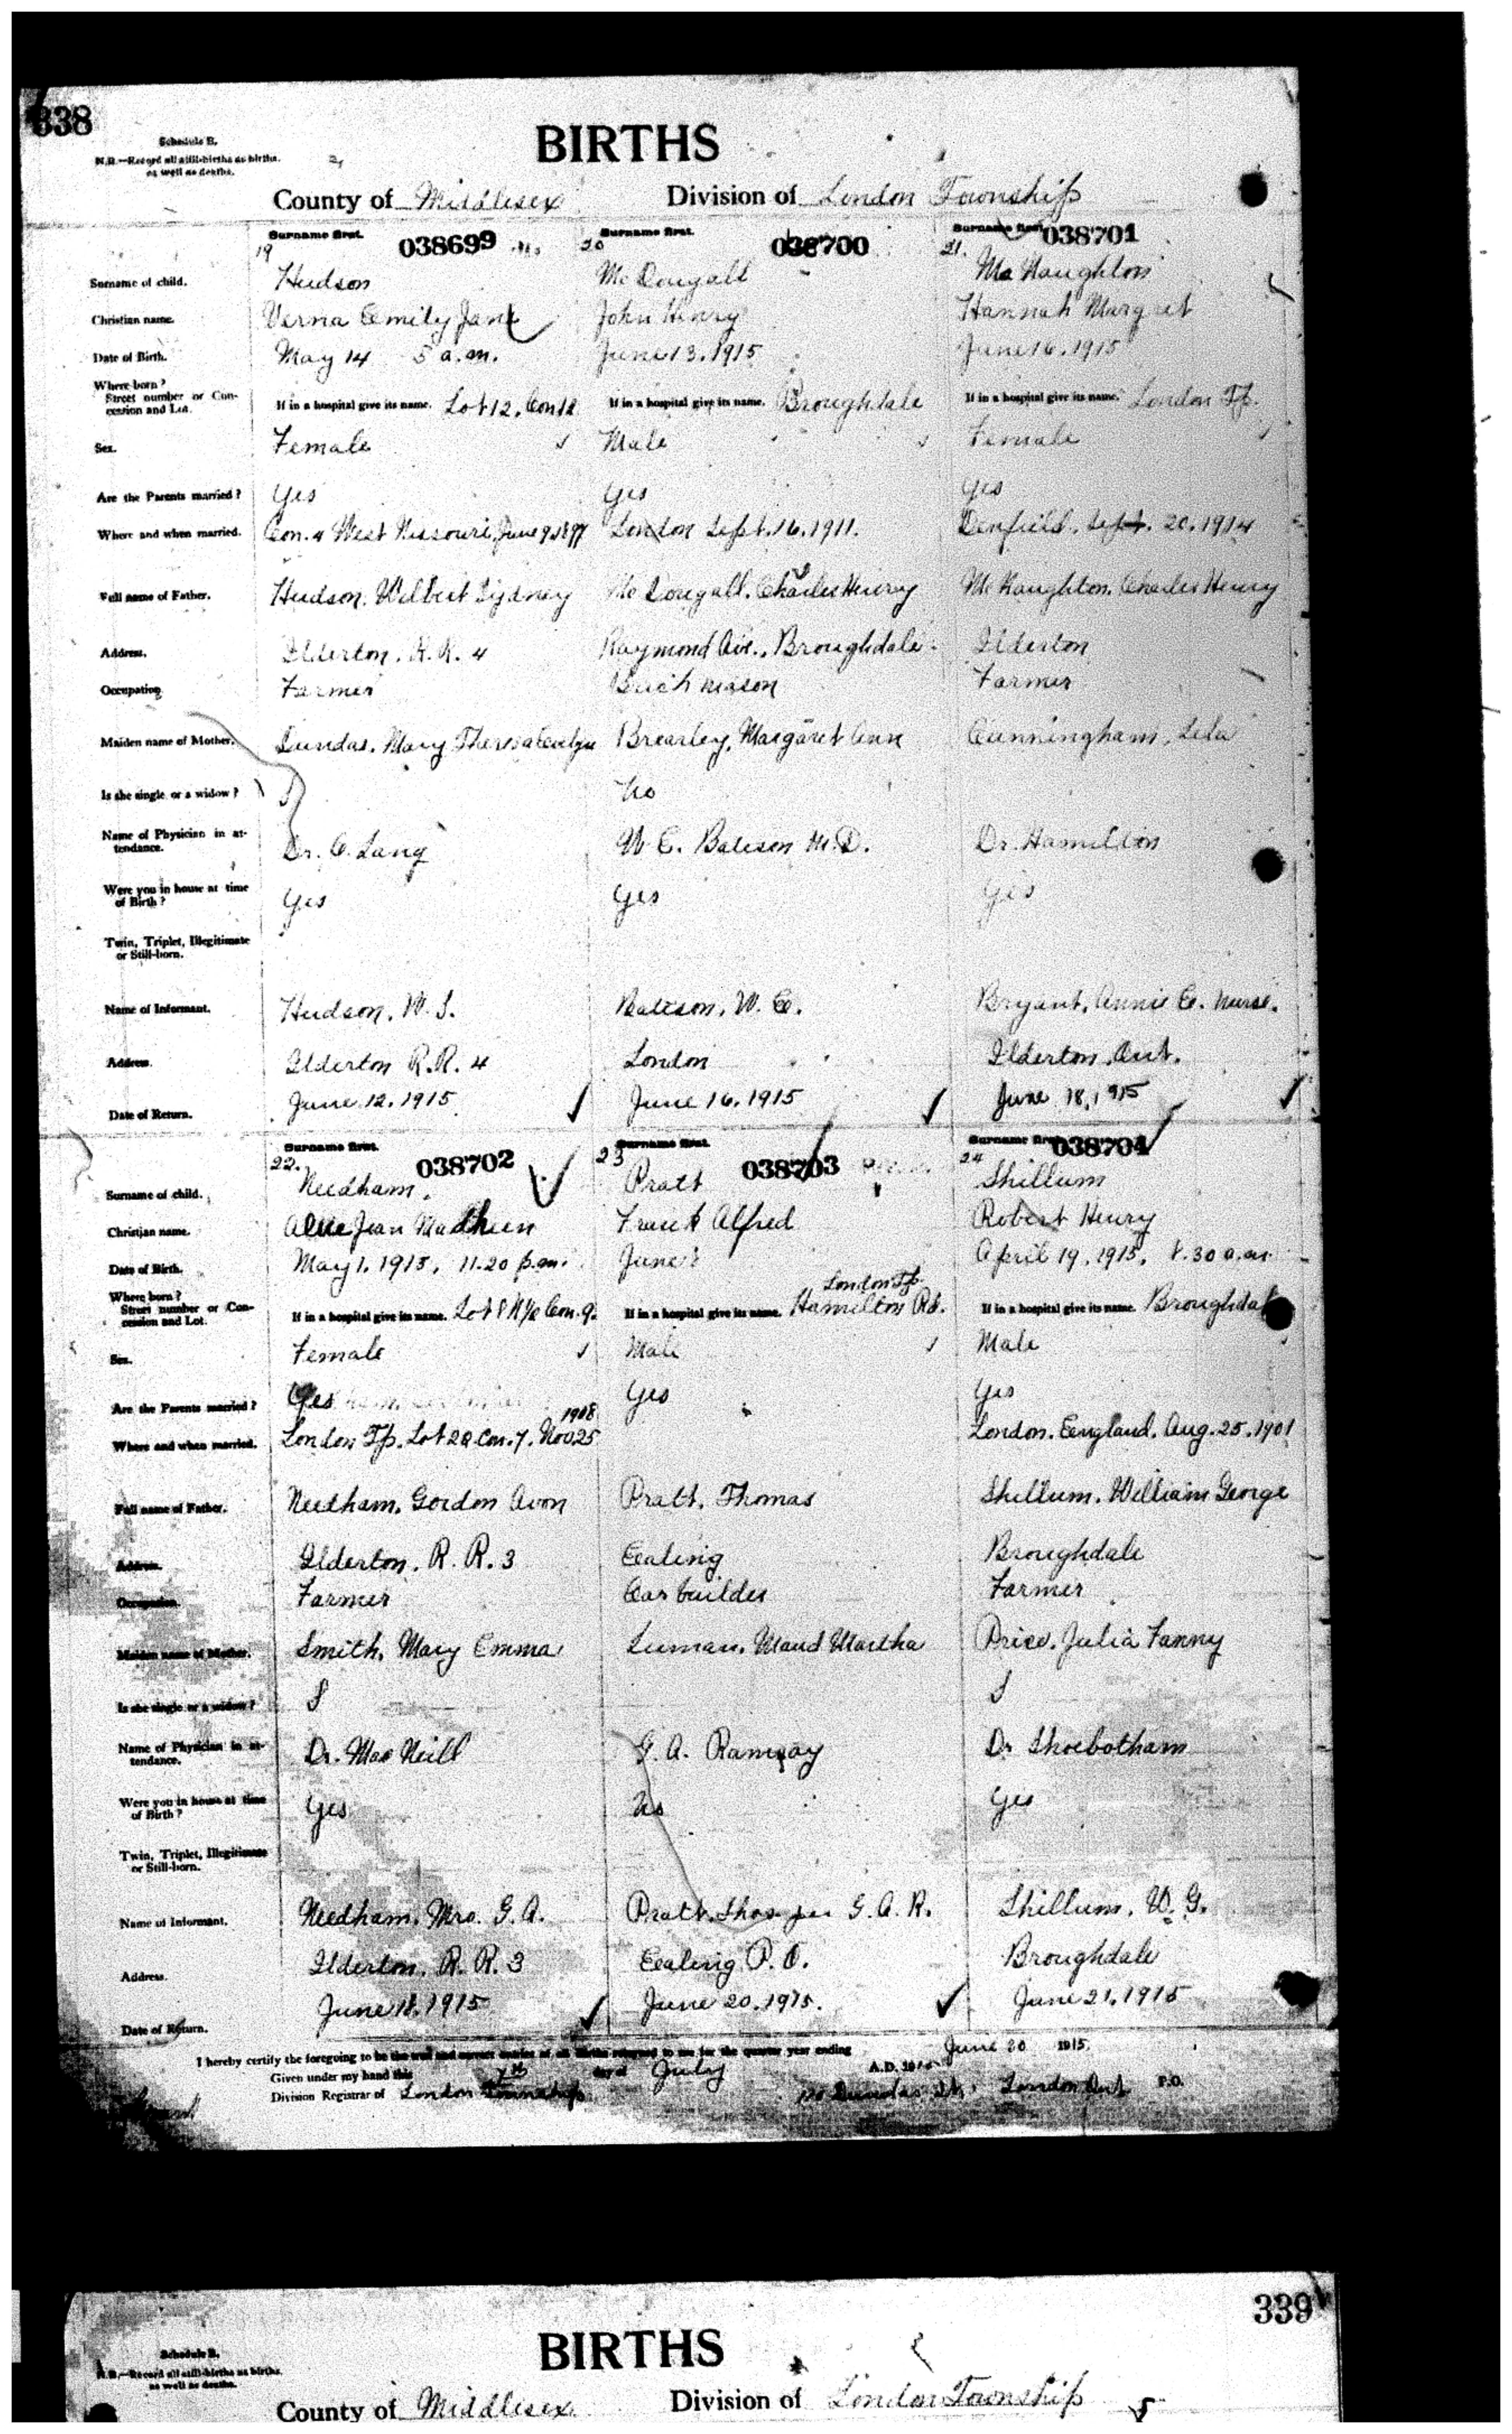 338
Schedule B.
N.B.—Record all still-births as births.
as well as deaths.
BIRTHS
County of Middlesex Division of London Township
Surname first. 038699 Surname first. 038700 Surname first. 038701
19 20 21.
Surname of child. Hudson McDougall McNaughton
Christian name. Verna Emily Jane John Henry Hannah Margret
Date of Birth. May 14 5 a.m. June 13. 1915 June 16. 1915
Where born?
Street number or Concession and Lot. If in a hospital give its name. Lot 12. Con 12 If in a hospital give its name. Broughdale If in a hospital give its name. London Tp.
Sex. Female Male Female
Are the Parents married? Yes Yes Yes
Where and when married. Con. 4 West Nissouri, June 9, London Sept. 16. 1911. Denfield. Sept. 20. 1914
Full name of Father. Hudson. Wilbert Sydney McDougall. Charles Henry McNaughton. Charles Henry
Address. Ilderton. R.R. 4 Raymond Ave., Broughdale. Ilderton
Occupation. Farmer Brick mason Farmer
Maiden name of Mother. Dundas. Mary Brearley, Margaret Ann Cunningham, Lela
Is she single or a widow? S No
Name of Physician in attendance. Dr. C. Lang W. E. Bateson M.D. Dr. Hamilton
Were you in house at time of Birth? Yes Yes Yes
Twin, Triplet, Illegitimate or Still-born.
Name of Informant. Hudson. W. S. Bateson. W. E. Bryant. Annie E. Nurse.
Address. Ilderton R.R. 4 London Ilderton. Ont.
Date of Return. June 12. 1915 June 16. 1915 June 18, 1915
Surname first. 038702 Surname first. 038703 Surname first. 038704
22. 23 24
Surname of child. Needham. Pratt Shillum
Christian name. Jean Frank Alfred Robert Henry
Date of Birth. May 1. 1915. 11.20 p.m. June April 19. 1915. 30 a.m.
Where born?
Street number or Concession and Lot. If in a hospital give its name. Lot 8 N½ Con. 9. If in a hospital give its name. London Tp. Hamilton Rd. If in a hospital give its name. Broughdale
Sex. Female Male Male
Are the Parents married? Yes Yes Yes
Where and when married. London Tp. Lot 20 Con. 7. Nov 25 1908 London. England. Aug. 25. 1901
Full name of Father. Needham. Gordon Avon Pratt. Thomas Shillum. William George
Address. Ilderton. R. R. 3 Ealing Broughdale
Occupation. Farmer Car builder Farmer
Maiden name of Mother. Smith. Mary Emma Luman. Maud Martha Price. Julia Fanny
Is she single or a widow? S S
Name of Physician in attendance. Dr. MacNeill G. A. Ramsay Dr Shoebotham
Were you in house at time of Birth? Yes No Yes
Twin, Triplet, Illegitimate or Still-born.
Name of Informant. Needham. Mrs. G. A. Pratt. Thos per G. A. R. Shillum. W. G.
Address. Ilderton. R. R. 3 Ealing P. O. Broughdale
Date of Return. June 18. 1915 June 20. 1915. June 21. 1915
I hereby certify the foregoing to be the true and correct entries of all Births returned to me for the quarter year ending June 30 1915.
Given under my hand this 7th day of July A.D. 1915
Division Registrar of London Township Dundas St. London Ont P.O.
339
Schedule B.
N.B.—Record all still-births as births.
as well as deaths.
BIRTHS
County of Middlesex Division of London Township